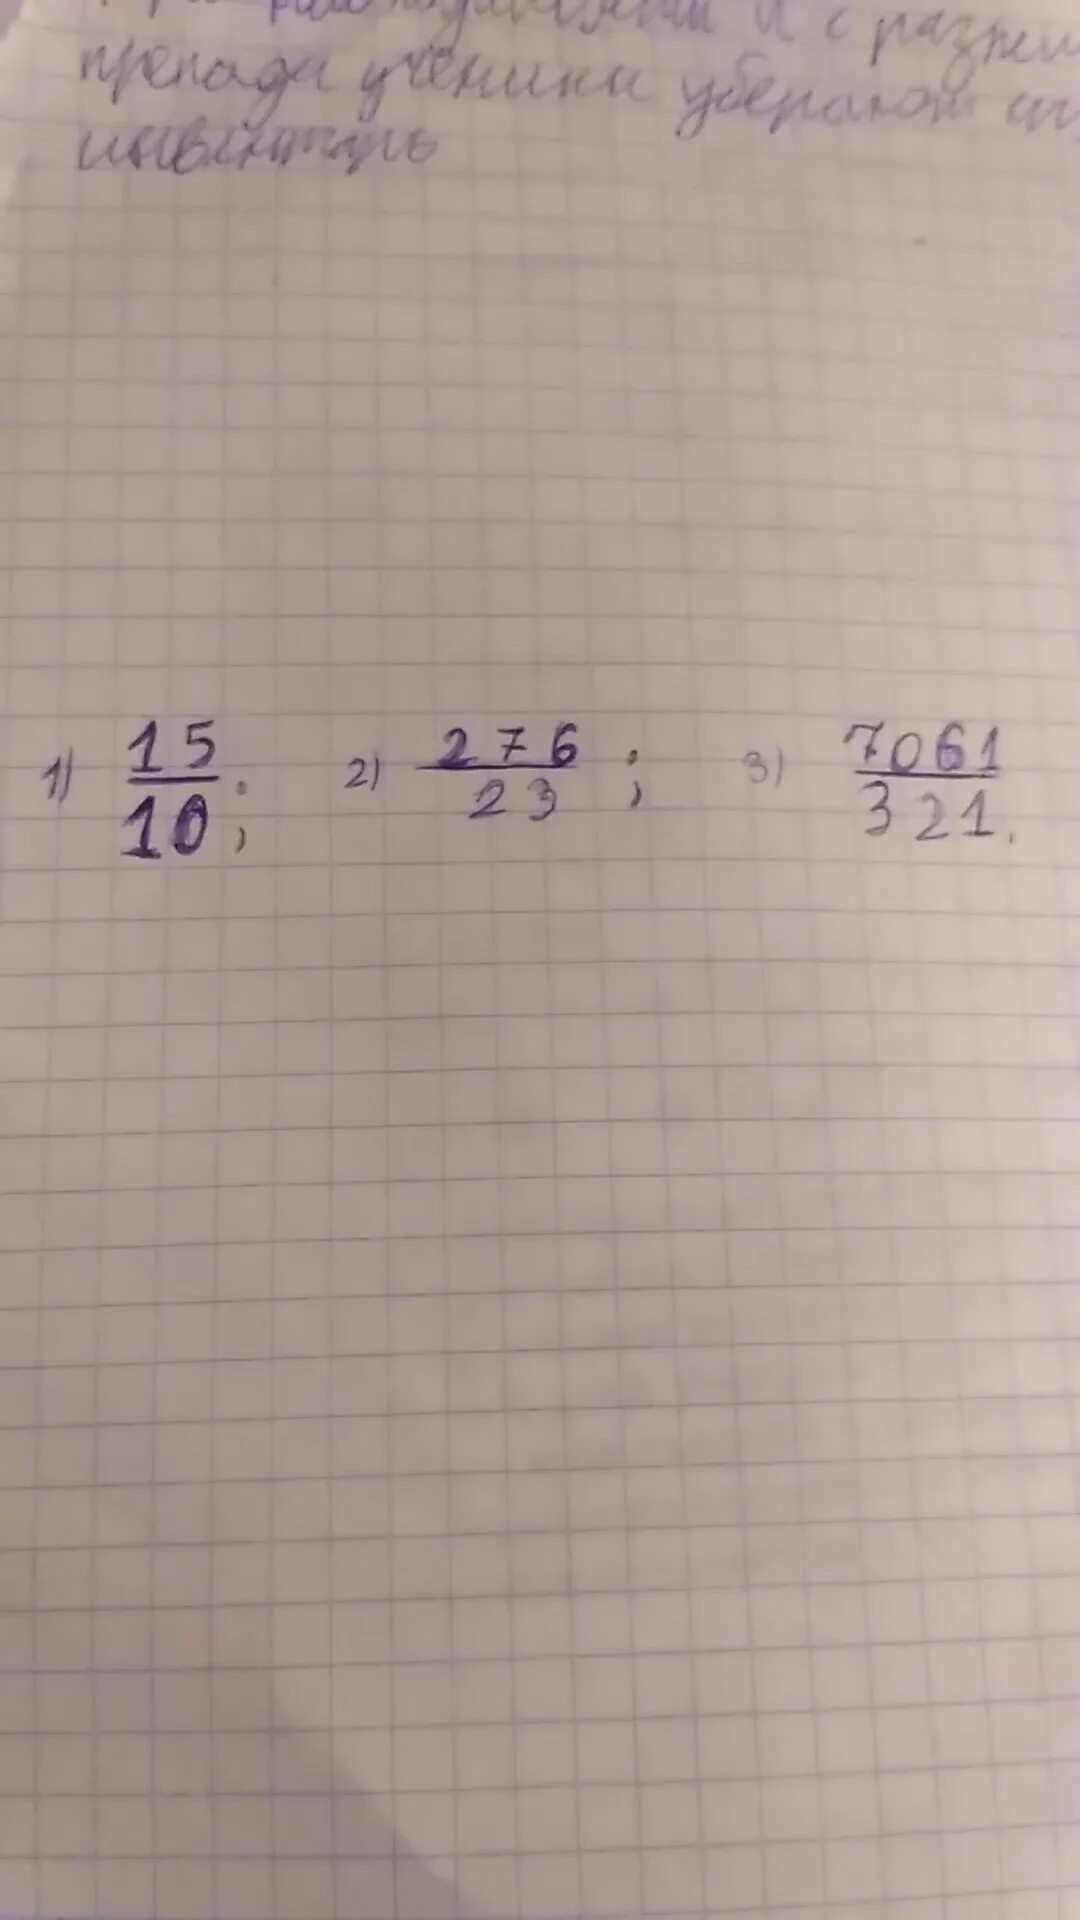 с разны
препади ученики уберают
инвентарь
1) 15/10; 2) 276/23; 3) 7061/321.